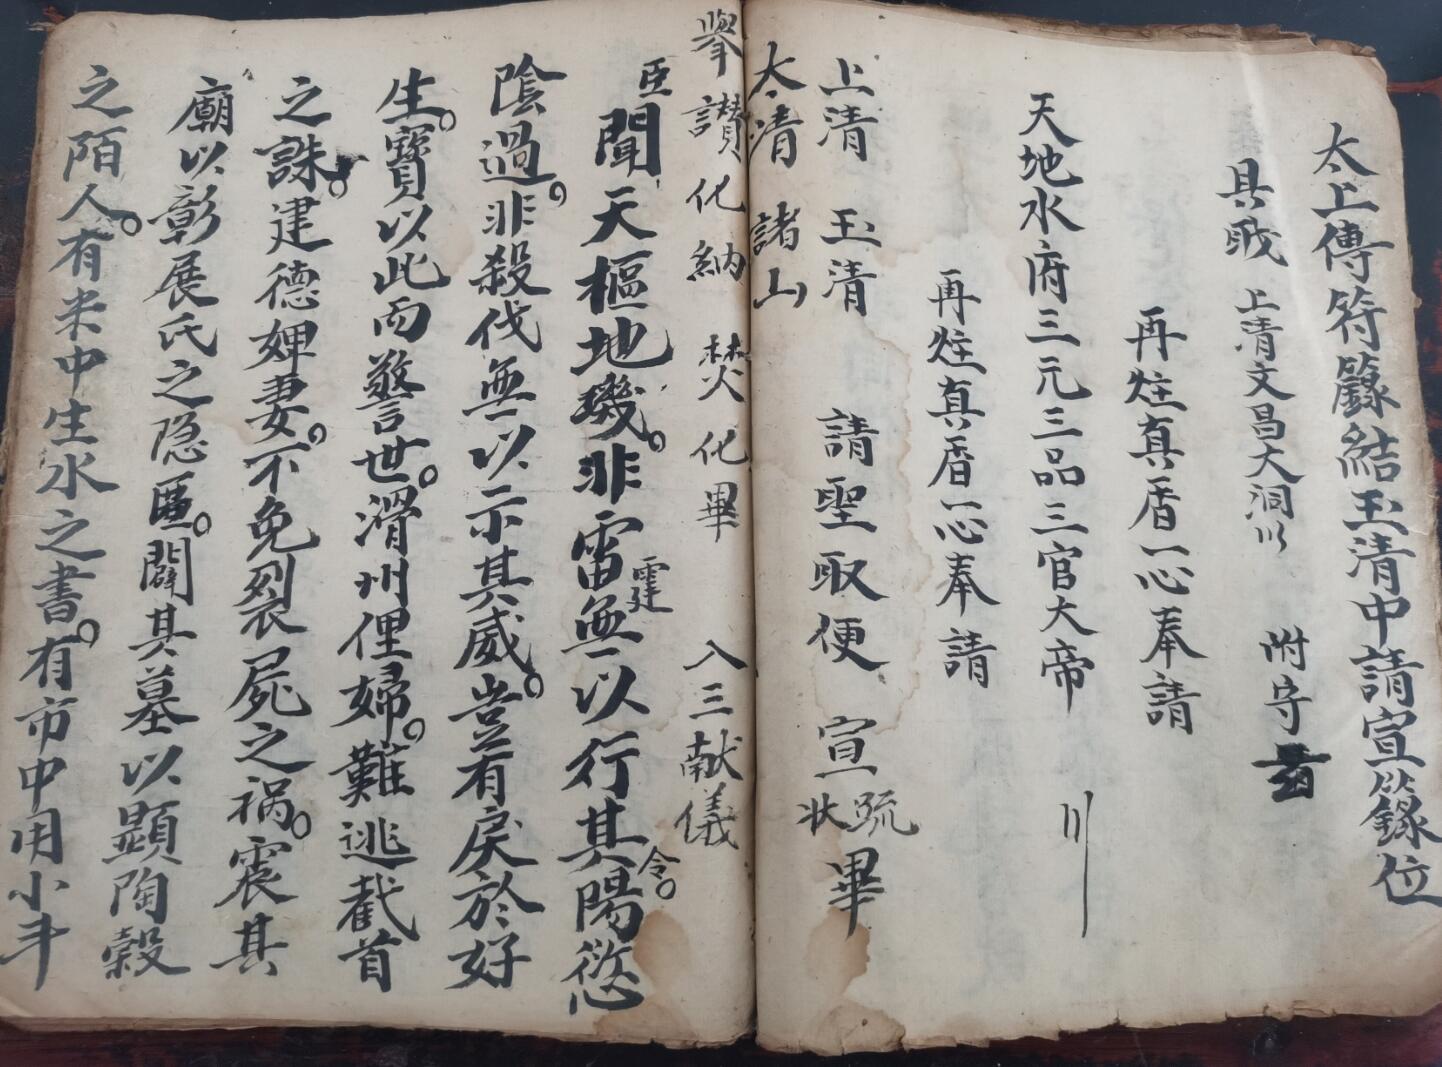 太上傳符籙結玉清中請宣籙位
具職 上清文昌大洞 附守
再炷真香一心奉請
天地水府三元三品三官大帝
再炷真香一心奉請
上清 玉清 請聖取便 宣疏狀畢
太清 諸山
舉讃化納 焚化畢 入三献儀
臣聞天樞地璣。非雷霆無以行其陽令。愆
陰過。非殺伐無以示其威。豈有戾於好
生。寶以此而警世。滑州俚婦。難逃截首
之誅。建德婢妻。不免裂屍之禍。震其
廟以彰展氏之隐匿。闢其墓以顯陶穀
之陌人。有米中生水之書。有市中用小斗